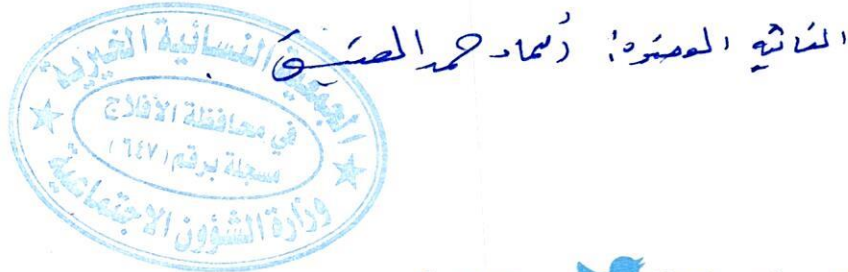 أسماء حمد المعتق
الجمعية النسائية الخيرية
في محافظة الأفلاج
مسجلة برقم (٦٤٧)
وزارة الشؤون الاجتماعية